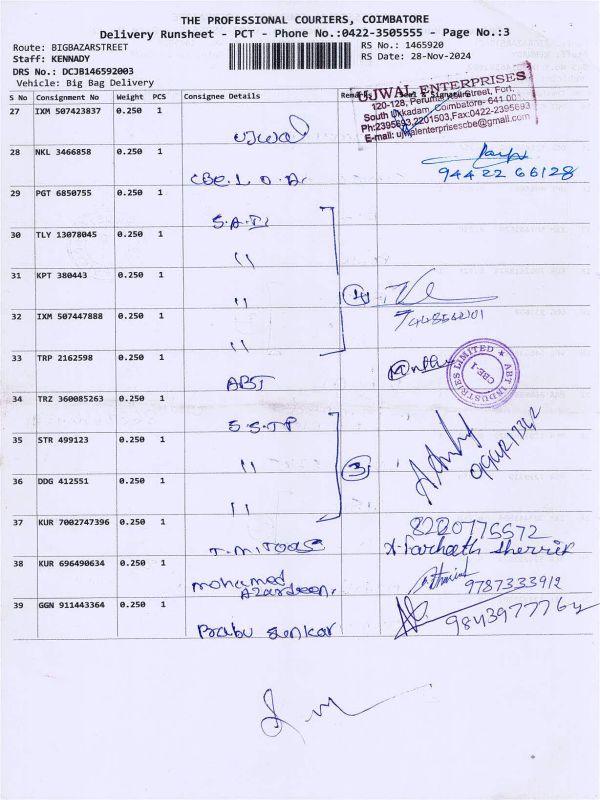 THE PROFESSIONAL COURIERS, COIMBATORE
Delivery Runsheet - PCT - Phone No.:0422-3505555 - Page No.:3
Route: BIGBAZARSTREET
RS No.: 1465920
Staff: KENNADY
RS Date: 28-Nov-2024
DRS No.: DCJB146592003
Vehicle: Big Bag Delivery
S No Consignment No Weight PCS Consignee Details Remarks
27 IXM 507423837 0.250 1 Ujwal
UJWAL ENTERPRISES
120-128, Perumal Street, Fort,
South Ukkadam, Coimbatore- 641 001
Ph:2395693,2201503,Fax:0422-2395693
E-mail: ujwalenterprisescbe@gmail.com
28 NKL 3466858 0.250 1 CBE.L.O.A. 94422 66128
29 PGT 6850755 0.250 1
30 TLY 13078045 0.250 1 "
31 KPT 380443 0.250 1 "
32 IXM 507447888 0.250 1 "
33 TRP 2162598 0.250 1 ABT
ABT INDUSTRIES LIMITED
CBE-1
34 TRZ 360085263 0.250 1 S.S.T.P
35 STR 499123 0.250 1 " 3
36 DDG 412551 0.250 1 "
37 KUR 7002747396 0.250 1 8220776572
38 KUR 696490634 0.250 1 Mohamed Azardeen, 9787333912
39 GGN 911443364 0.250 1 Prabu Sankar 9843977764